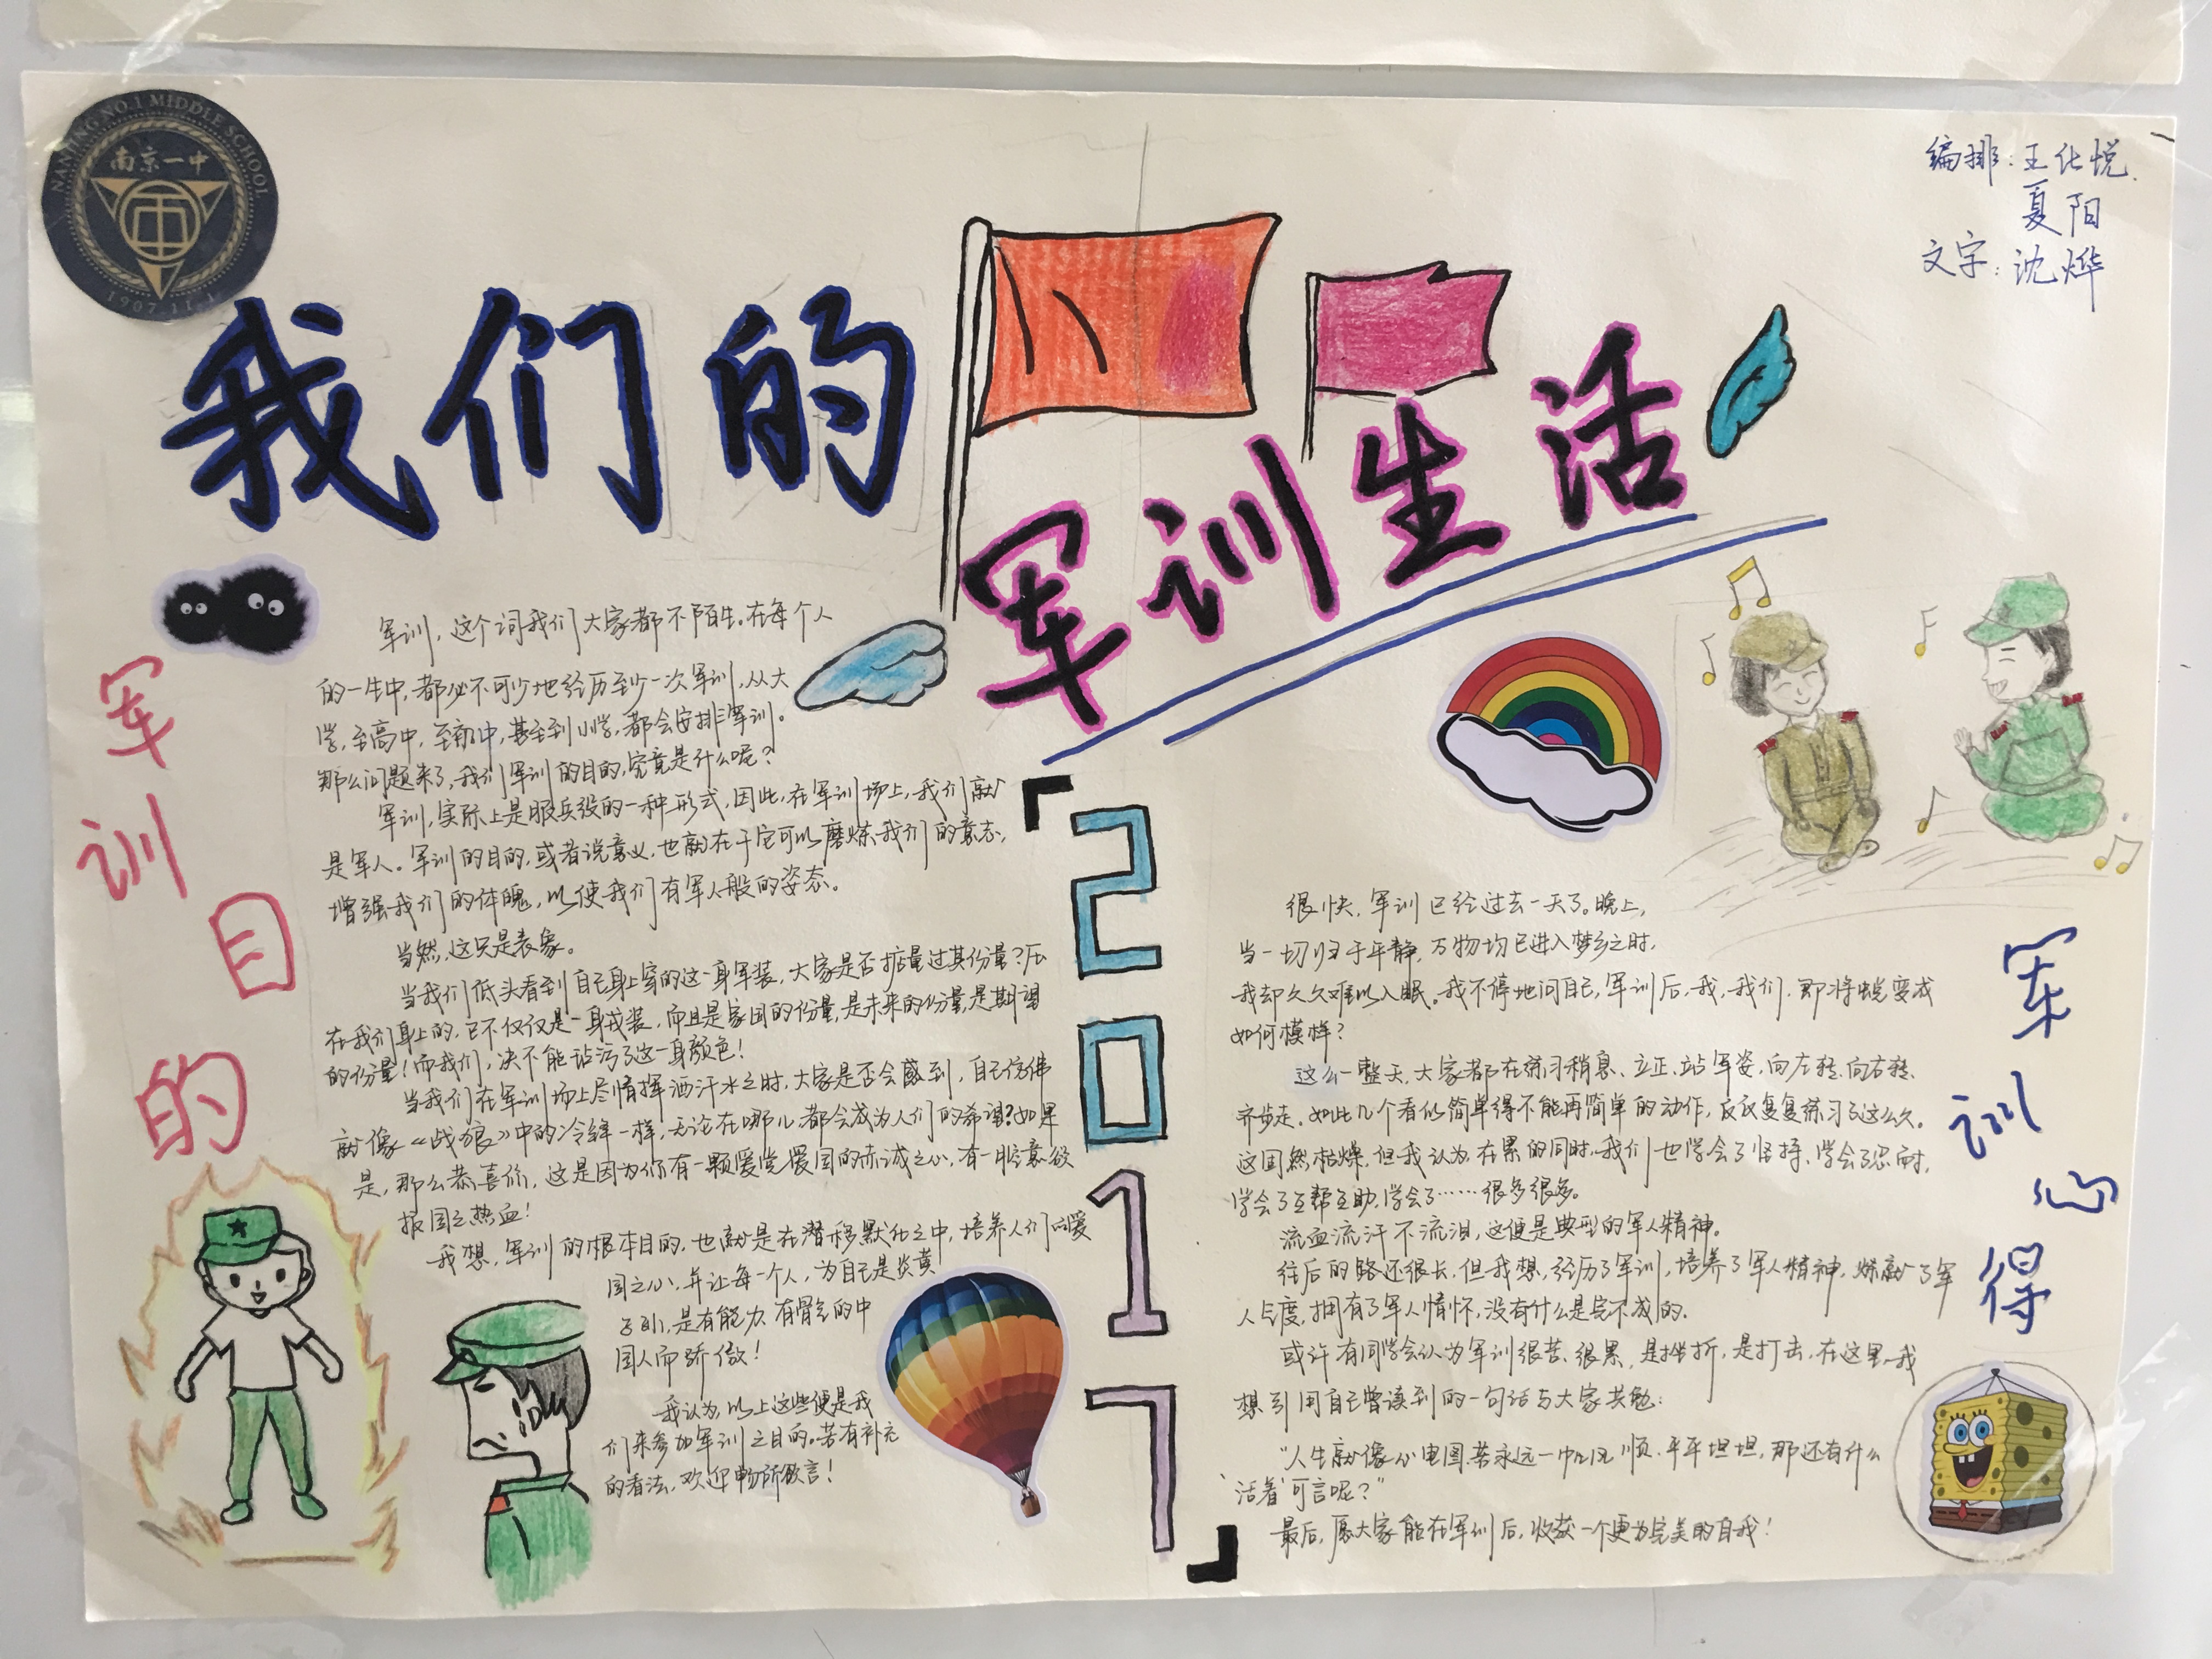 NANJING NO.1 MIDDLE SCHOOL
南京一中
1907.11.1
编排：王化悦
夏阳
文字：沈烨
我们的
军训生活
军训目的
军训，这个词我们大家都不陌生。在每个人
的一生中，都必不可少地经历至少一次军训，从大
学，至高中，至初中，甚至到小学，都会安排军训。
那么问题来了，我们军训的目的，究竟是什么呢？
军训，实际上是服兵役的一种形式，因此，在军训场上，我们就
是军人。军训的目的，或者说意义，也就在于它可以磨炼我们的意志，
增强我们的体魄，以使我们有军人般的姿态。
当然，这只是表象。
当我们低头看到自己身上穿的这一身军装，大家是否掂量过其份量？压
在我们身上的，已不仅仅是一身戎装，而且是家国的份量，是未来的份量，是期望
的份量！而我们，决不能玷污了这一身颜色！
当我们在军训场上尽情挥洒汗水之时，大家是否会感到，自己仿佛
就像《战狼》中的冷锋一样，无论在哪儿，都会成为人们的希望？如果
是，那么恭喜你，这是因为你有一颗爱党爱国的赤诚之心，有一腔意欲
报国之热血！
我想，军训的根本目的，也就是在潜移默化之中，培养人们的爱
国之心，并让每一个人，为自己是炎黄
子孙，是有能力、有骨气的中
国人而骄傲！
我认为，以上这些便是我
们来参加军训之目的。若有补充
的看法，欢迎畅所欲言！
「2017」
军训心得
很快，军训已经过去一天了。晚上，
当一切归于平静，万物均已进入梦乡之时，
我却久久难以入眠。我不停地问自己，军训后，我，我们，即将蜕变成
如何模样？
这么一整天，大家都在练习稍息、立正、站军姿，向左转、向右转、
齐步走，如此几个看似简单得不能再简单的动作，反反复复练习了这么久。
这固然枯燥，但我认为，在累的同时，我们也学会了坚持、学会了忍耐，
学会了互帮互助，学会了……很多很多。
流血流汗不流泪，这便是典型的军人精神。
往后的路还很长，但我想，经历了军训，培养了军人精神，炼就了军
人气度，拥有了军人情怀，没有什么是完不成的。
或许有同学会认为军训很苦、很累，是挫折，是打击，在这里，我
想引用自己曾读到的一句话与大家共勉：
“人生就像心电图，若永远一帆风顺、平平坦坦，那还有什么
‘活着’可言呢？”
最后，愿大家能在军训后，收获一个更为完美的自我！